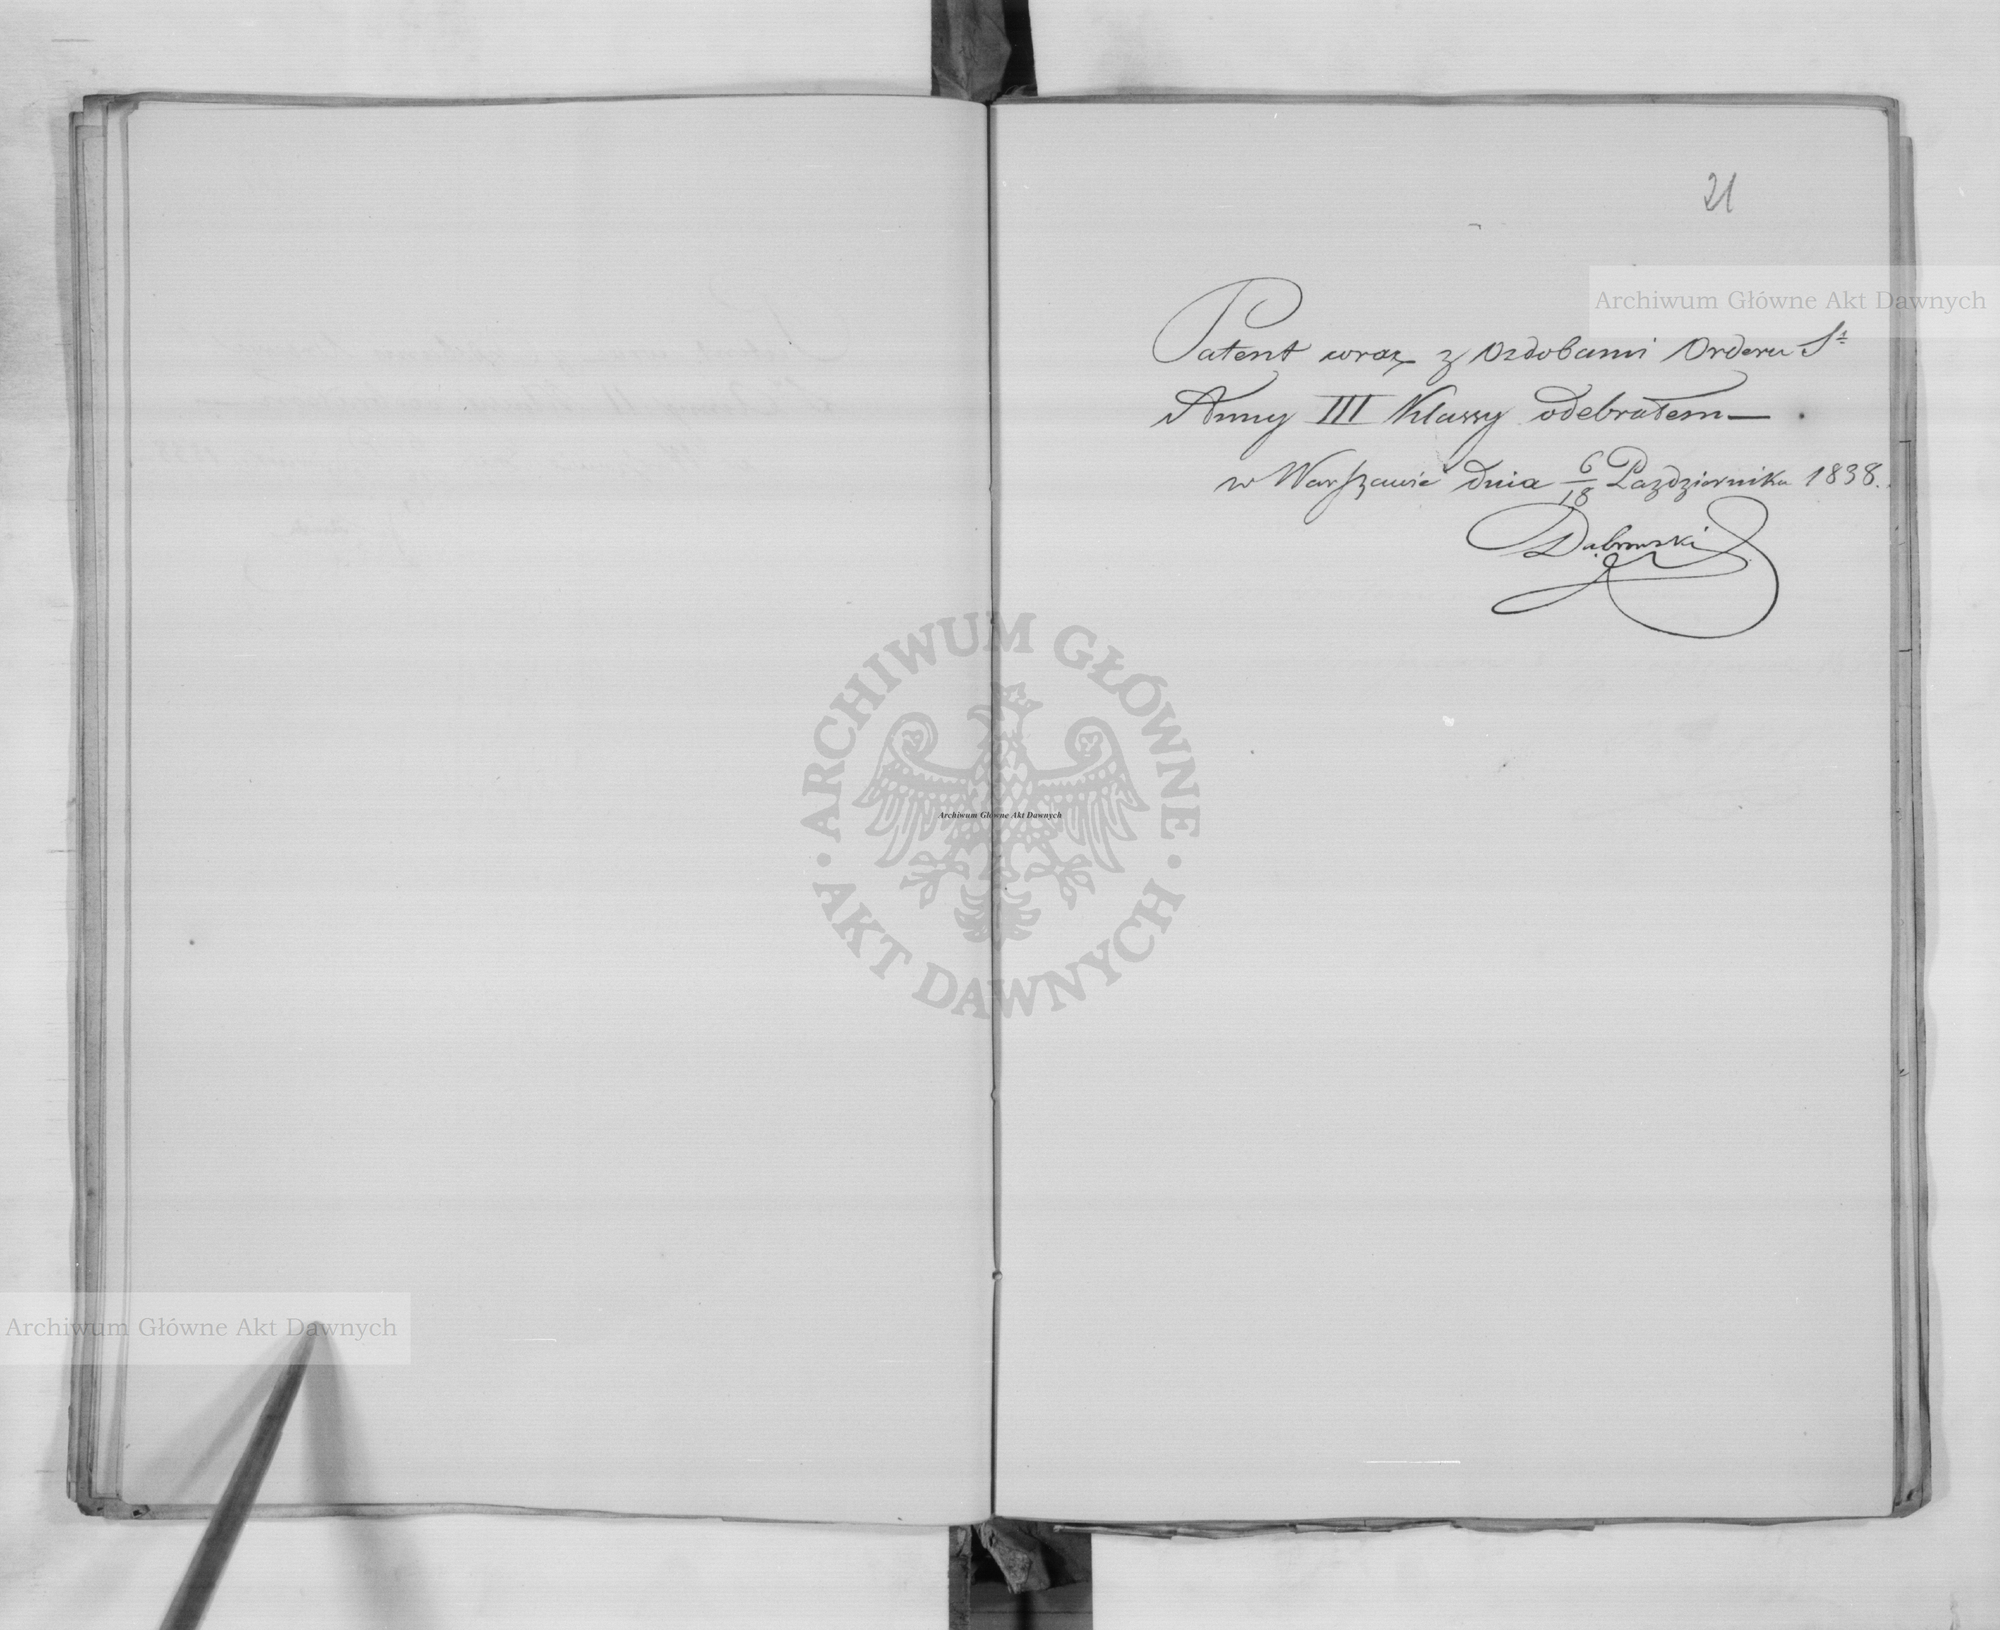 21
Patent wraz z Ozdobami Orderu Sª
Anny III Klassy odebrałem —
w Warszawie dnia 6/18 Pazdziernika 1838.
Dąbrowski
Archiwum Główne Akt Dawnych
ARCHIWUM GŁÓWNE · AKT DAWNYCH ·
Archiwum Główne Akt Dawnych
Archiwum Główne Akt Dawnych